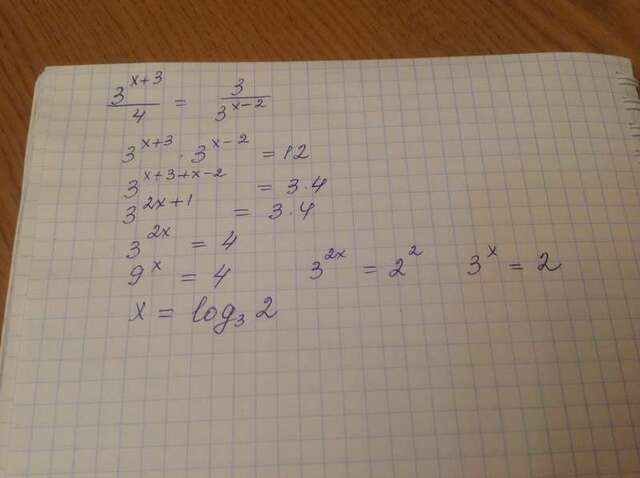 3^{x+3}/4 = 3/3^{x-2}
3^{x+3} · 3^{x-2} = 12
3^{x+3+x-2} = 3·4
3^{2x+1} = 3·4
3^{2x} = 4
9^x = 4 3^{2x} = 2^2 3^x = 2
x = log_3 2